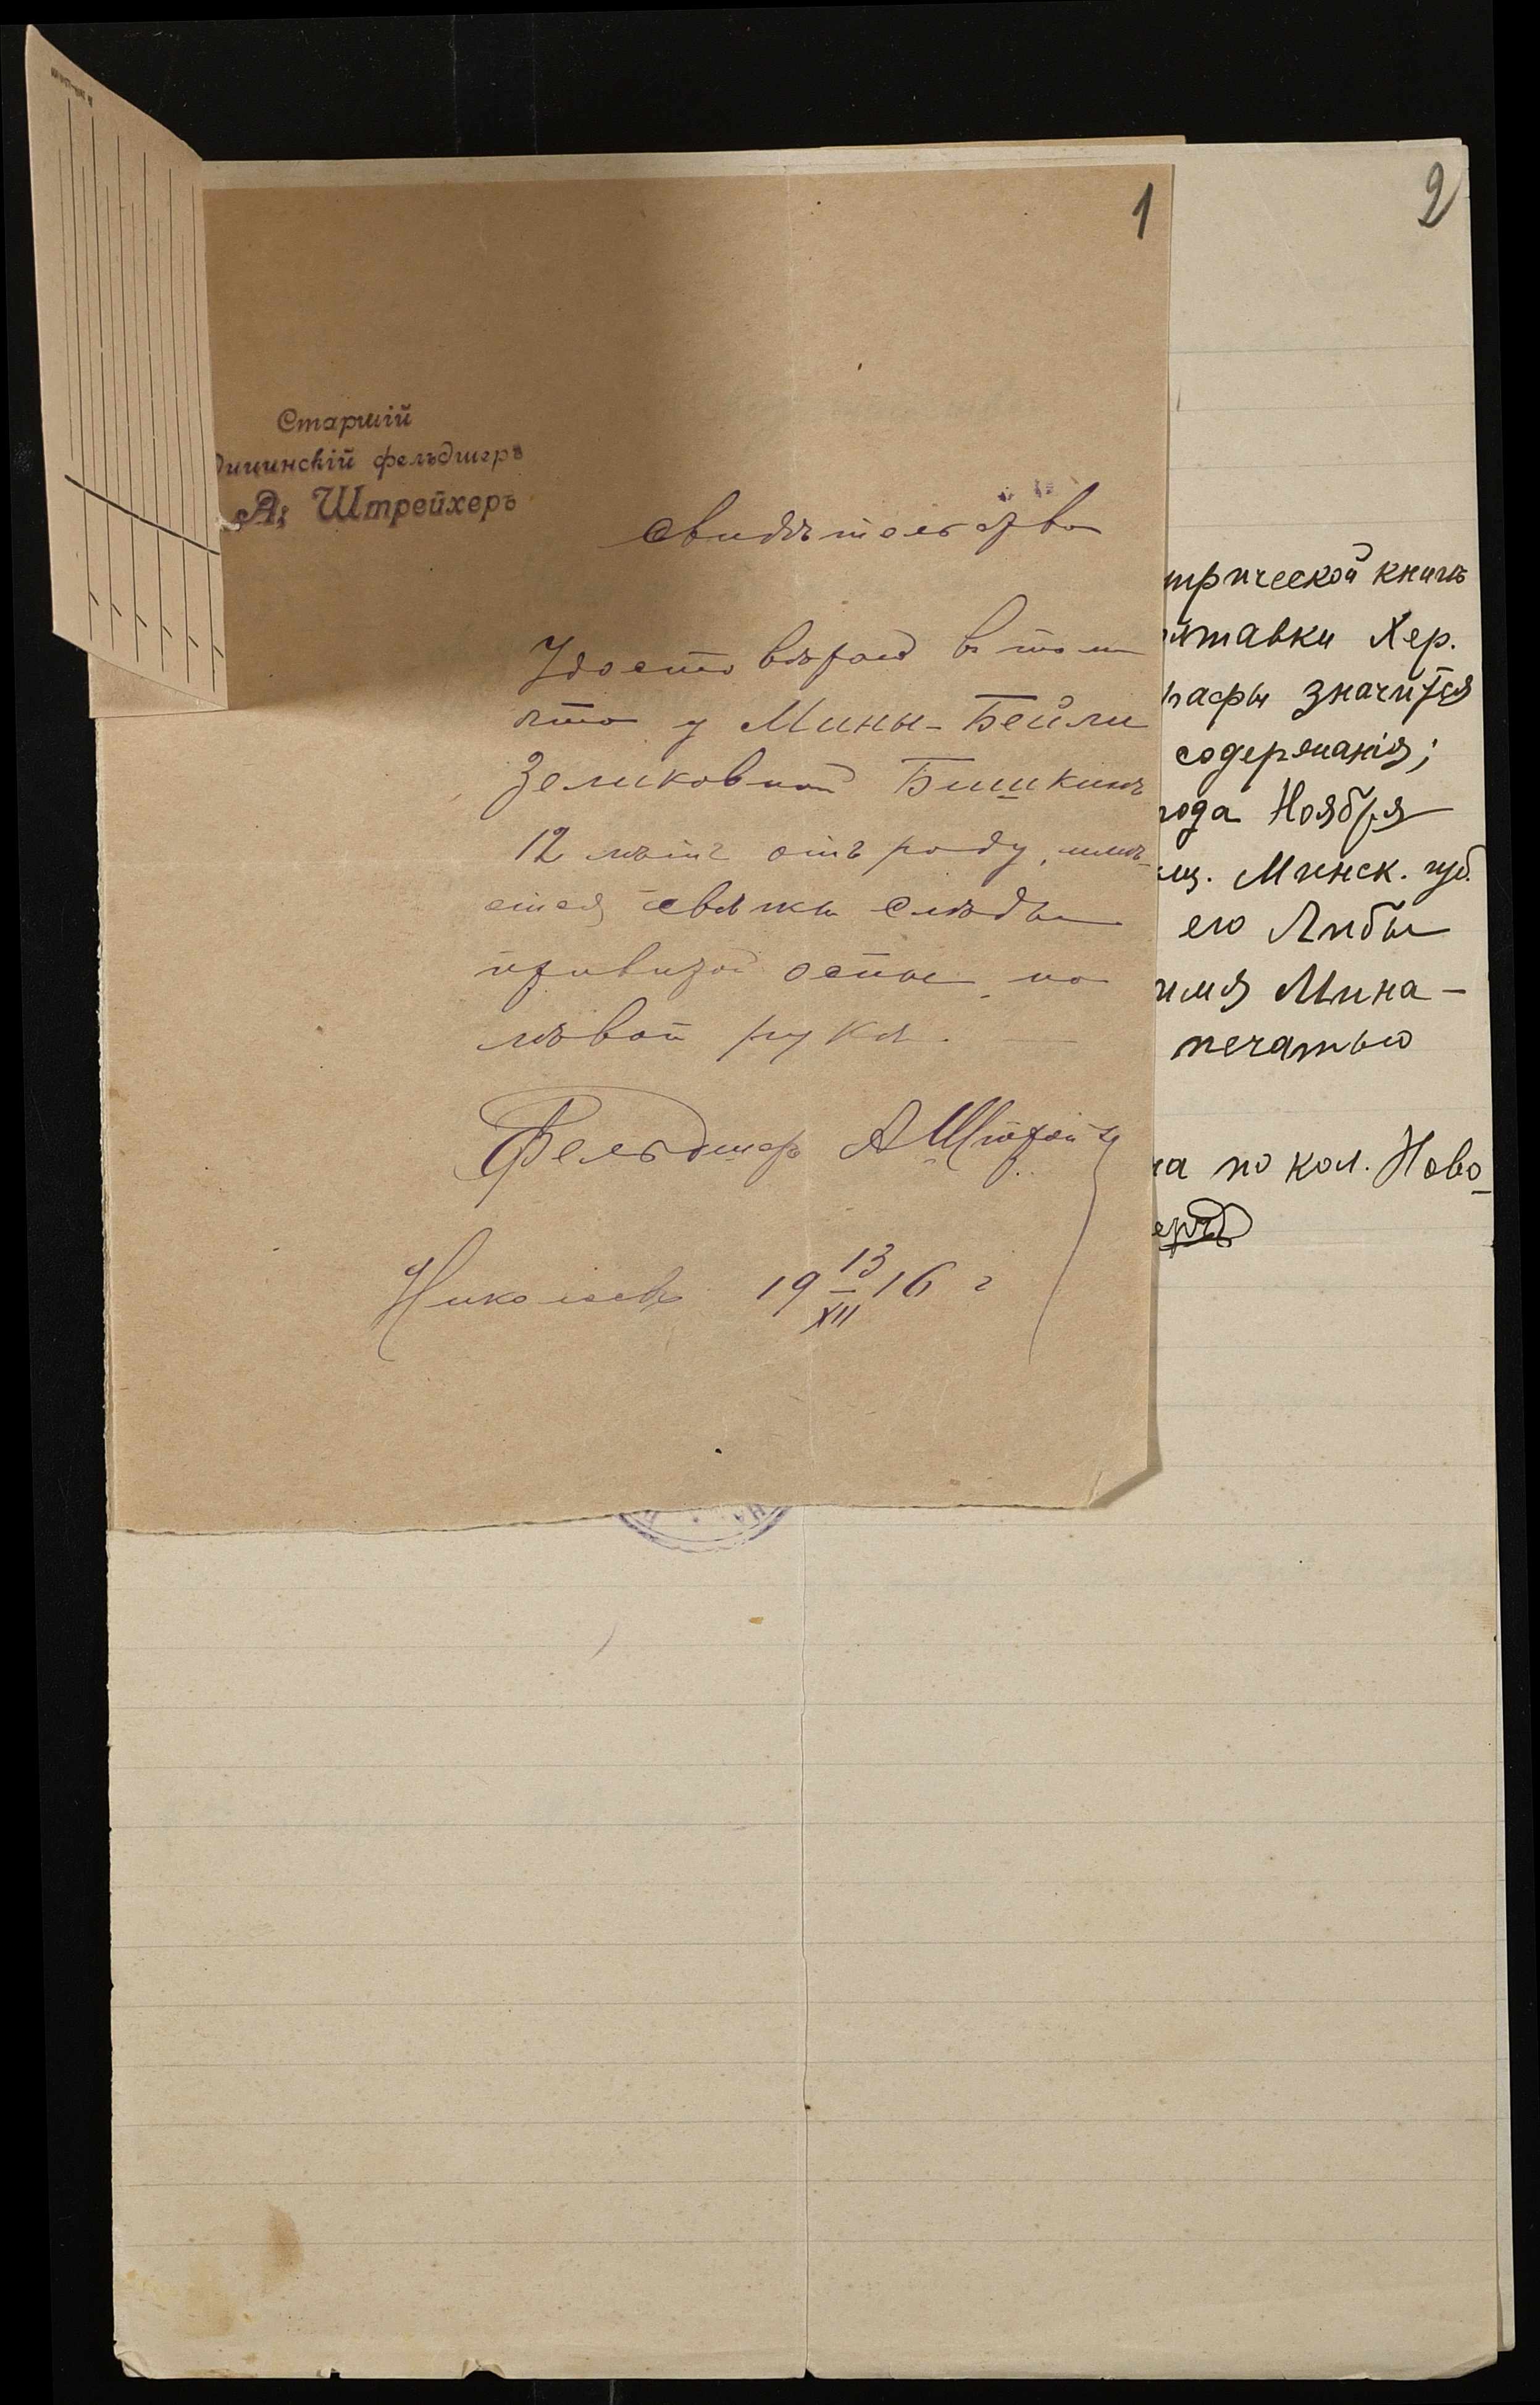 1
2
Старшій
дицинскій фельдшеръ
А. Штрейхеръ
Свидѣтельство
Удостовѣряю въ томъ
что у Мины-Бейли
Зеликовной Бишкинъ
12 лѣтъ отъ роду, имѣ-
ется свѣжи слѣды
привитой оспы на
лѣвой рукѣ.
Фельдшеръ АШтрей
Николаевъ 19 13/XII 16 г
трической книгѣ
лтавки Хер.
рафы значится
содержанія;
года Ноября
Минск. губ.
его Либы
имя Мина-
печатью
на по кол. Ново-